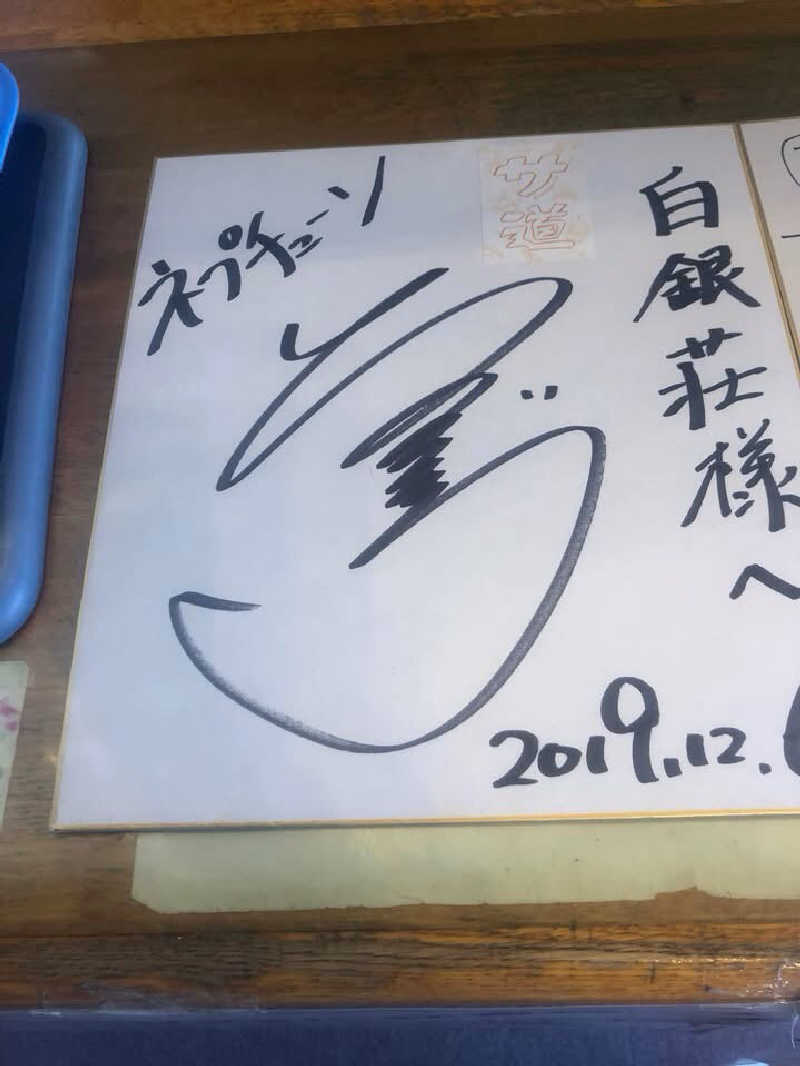 白銀荘様へ
サ道
ネプチューン
2019.12.